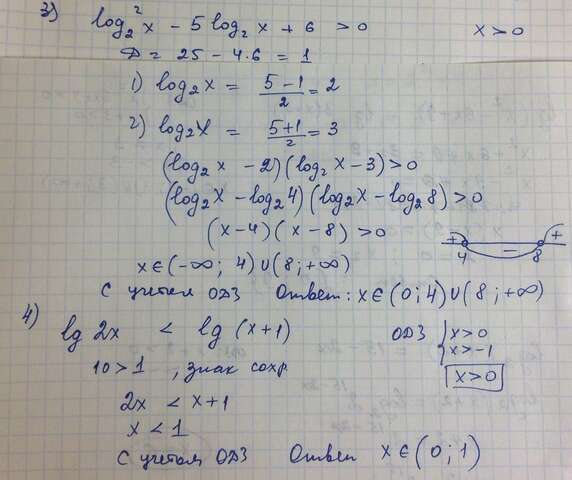 3) log₂²x - 5 log₂x + 6 > 0    x > 0
D = 25 - 4·6 = 1
1) log₂x = (5-1)/2 = 2
2) log₂x = (5+1)/2 = 3
(log₂x - 2)(log₂x - 3) > 0
(log₂x - log₂4)(log₂x - log₂8) > 0
(x-4)(x-8) > 0    + 4 - 8 +
x∈(-∞; 4)∪(8; +∞)
С учетом ОДЗ    Ответ: x∈(0; 4)∪(8; +∞)
4) lg 2x < lg (x+1)    ОДЗ { x>0
x>-1
10 > 1, знак сохр    x>0
2x < x+1
x < 1
С учетом ОДЗ    Ответ x∈(0; 1)